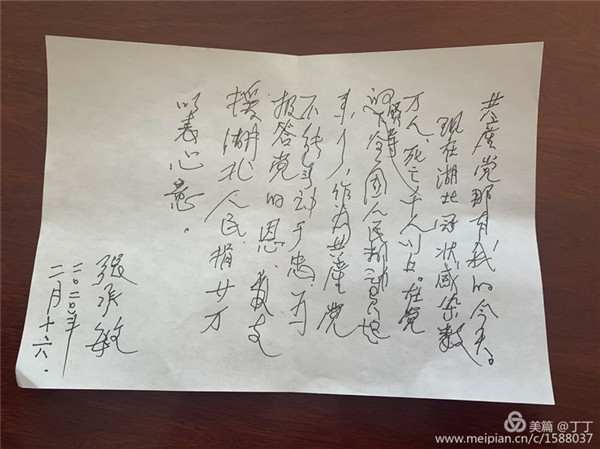 共產党那有我的今天。
现在湖北冠状感染数
万人，死亡千人以上。在党
领导下全国人民都动员起
来了，作为共產党
不能無动于忠，为
报答党的恩，支
援湖北人民，捐廿万
以表心意。
张承敏
二〇二〇年
二月十六．
美篇 @丁丁
www.meipian.cn/c/1588037